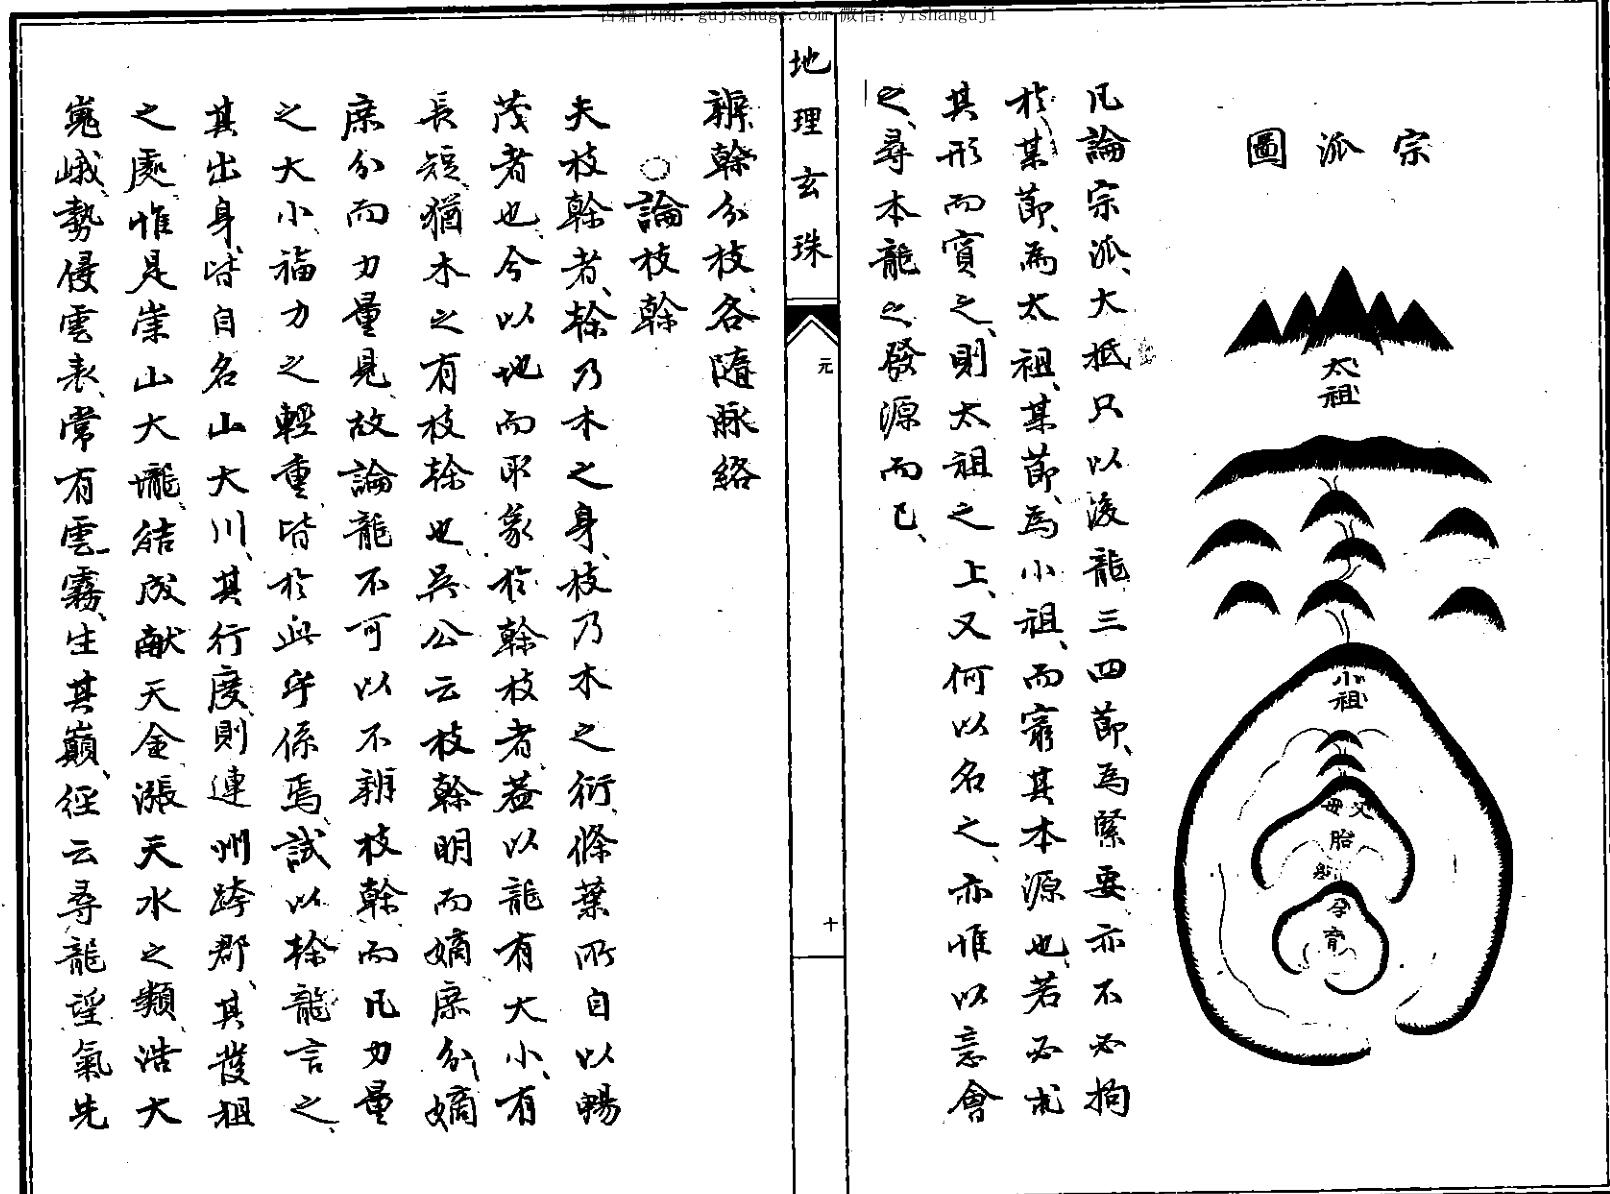 古籍书阁：gujishuge.com 微信：yishanguji
宗派圖
太祖
小祖
父母
胎
息
孕
育
凡論宗派、大抵只以後龍三四節、為緊要亦不必拘
於某節、為太祖、某節、為小祖、而窮其本源也、若必求
其形而實之、則太祖之上、又何以名之、亦惟以意會
之、尋本龍之發源而已、
地理玄珠
元
十
辨幹分枝、各隨脉絡
○論枝幹
夫枝幹者、榦乃木之身、枝乃木之衍、條葉所自以暢
茂者也、今以地而取象於幹枝者、蓋以龍有大小、有
長短、猶木之有枝榦也、吳公云枝幹明而嫡庶分、嫡
庶分而力量見、故論龍不可以不辨枝幹而凡力量
之大小、福力之輕重、皆於此乎係焉、試以榦龍言之、
其出身、皆自名山大川、其行度、則連州跨郡、其發祖
之處、惟是崇山大壠、結成献天金漲天水之類浩大
嵬峨、勢侵雲表、常有雲霧、生其巔、徑云尋龍望氣先